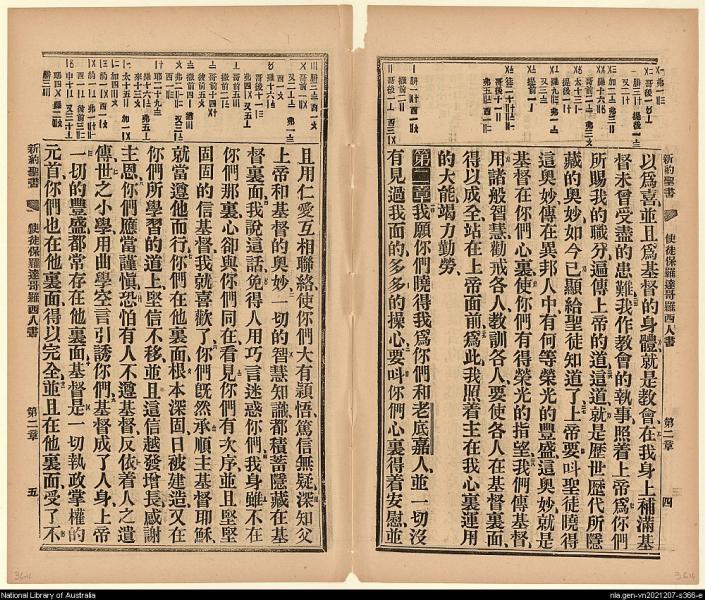 新約聖書 使徒保羅達哥羅西人書 第二章 四
以爲喜並且爲基督的身體就是教會在我身上補滿基
督未曾受盡的患難我作教會的執事照着上帝爲你們
所賜我的職分遍傳上帝的道這道就是歷世歷代所隱
藏的奧妙如今已顯給聖徒知道了上帝要呌聖徒曉得
這奧妙傳在異邦人中有何等榮光的豐盛這奧妙就是
基督在你們心裏使你們有得榮光的指望我們傳基督
用諸般智慧勸戒各人教訓各人要使各人在基督裏面
得以成全站在上帝面前爲此我照着主在我心裏運用
的大能竭力勤勞
第二章 我願你們曉得我爲你們和老底嘉人並一切沒
有見過我面的多多的操心要呌你們心裏得着安慰並
且用仁愛互相聯絡使你們大有穎悟篤信無疑深知父
上帝和基督的奧妙一切的智慧知識都積蓄隱藏在基
督裏面我說這話免得人用巧言迷惑你們我身雖不在
你們那裏心卻與你們同在看見你們有次序並且堅堅
固固的信基督我就喜歡了你們旣然承順主基督耶穌
就當遵他而行你們在他裏面根本深固日被建造又在
你們所學習的道上堅信不移並且這信越發增長感謝
主恩你們應當謹愼恐怕有人不遵基督反依着人之遺
傳世之小學用曲學空言引誘你們基督成了人身上帝
一切的豐盛都常存在他裏面基督是一切執政掌權的
元首你們也在他裏面得以完全並且在他裏面受了不
新約聖書 使徒保羅達哥羅西人書 第二章 五
National Library of Australia
nla.gen-vn2021207-s366-e